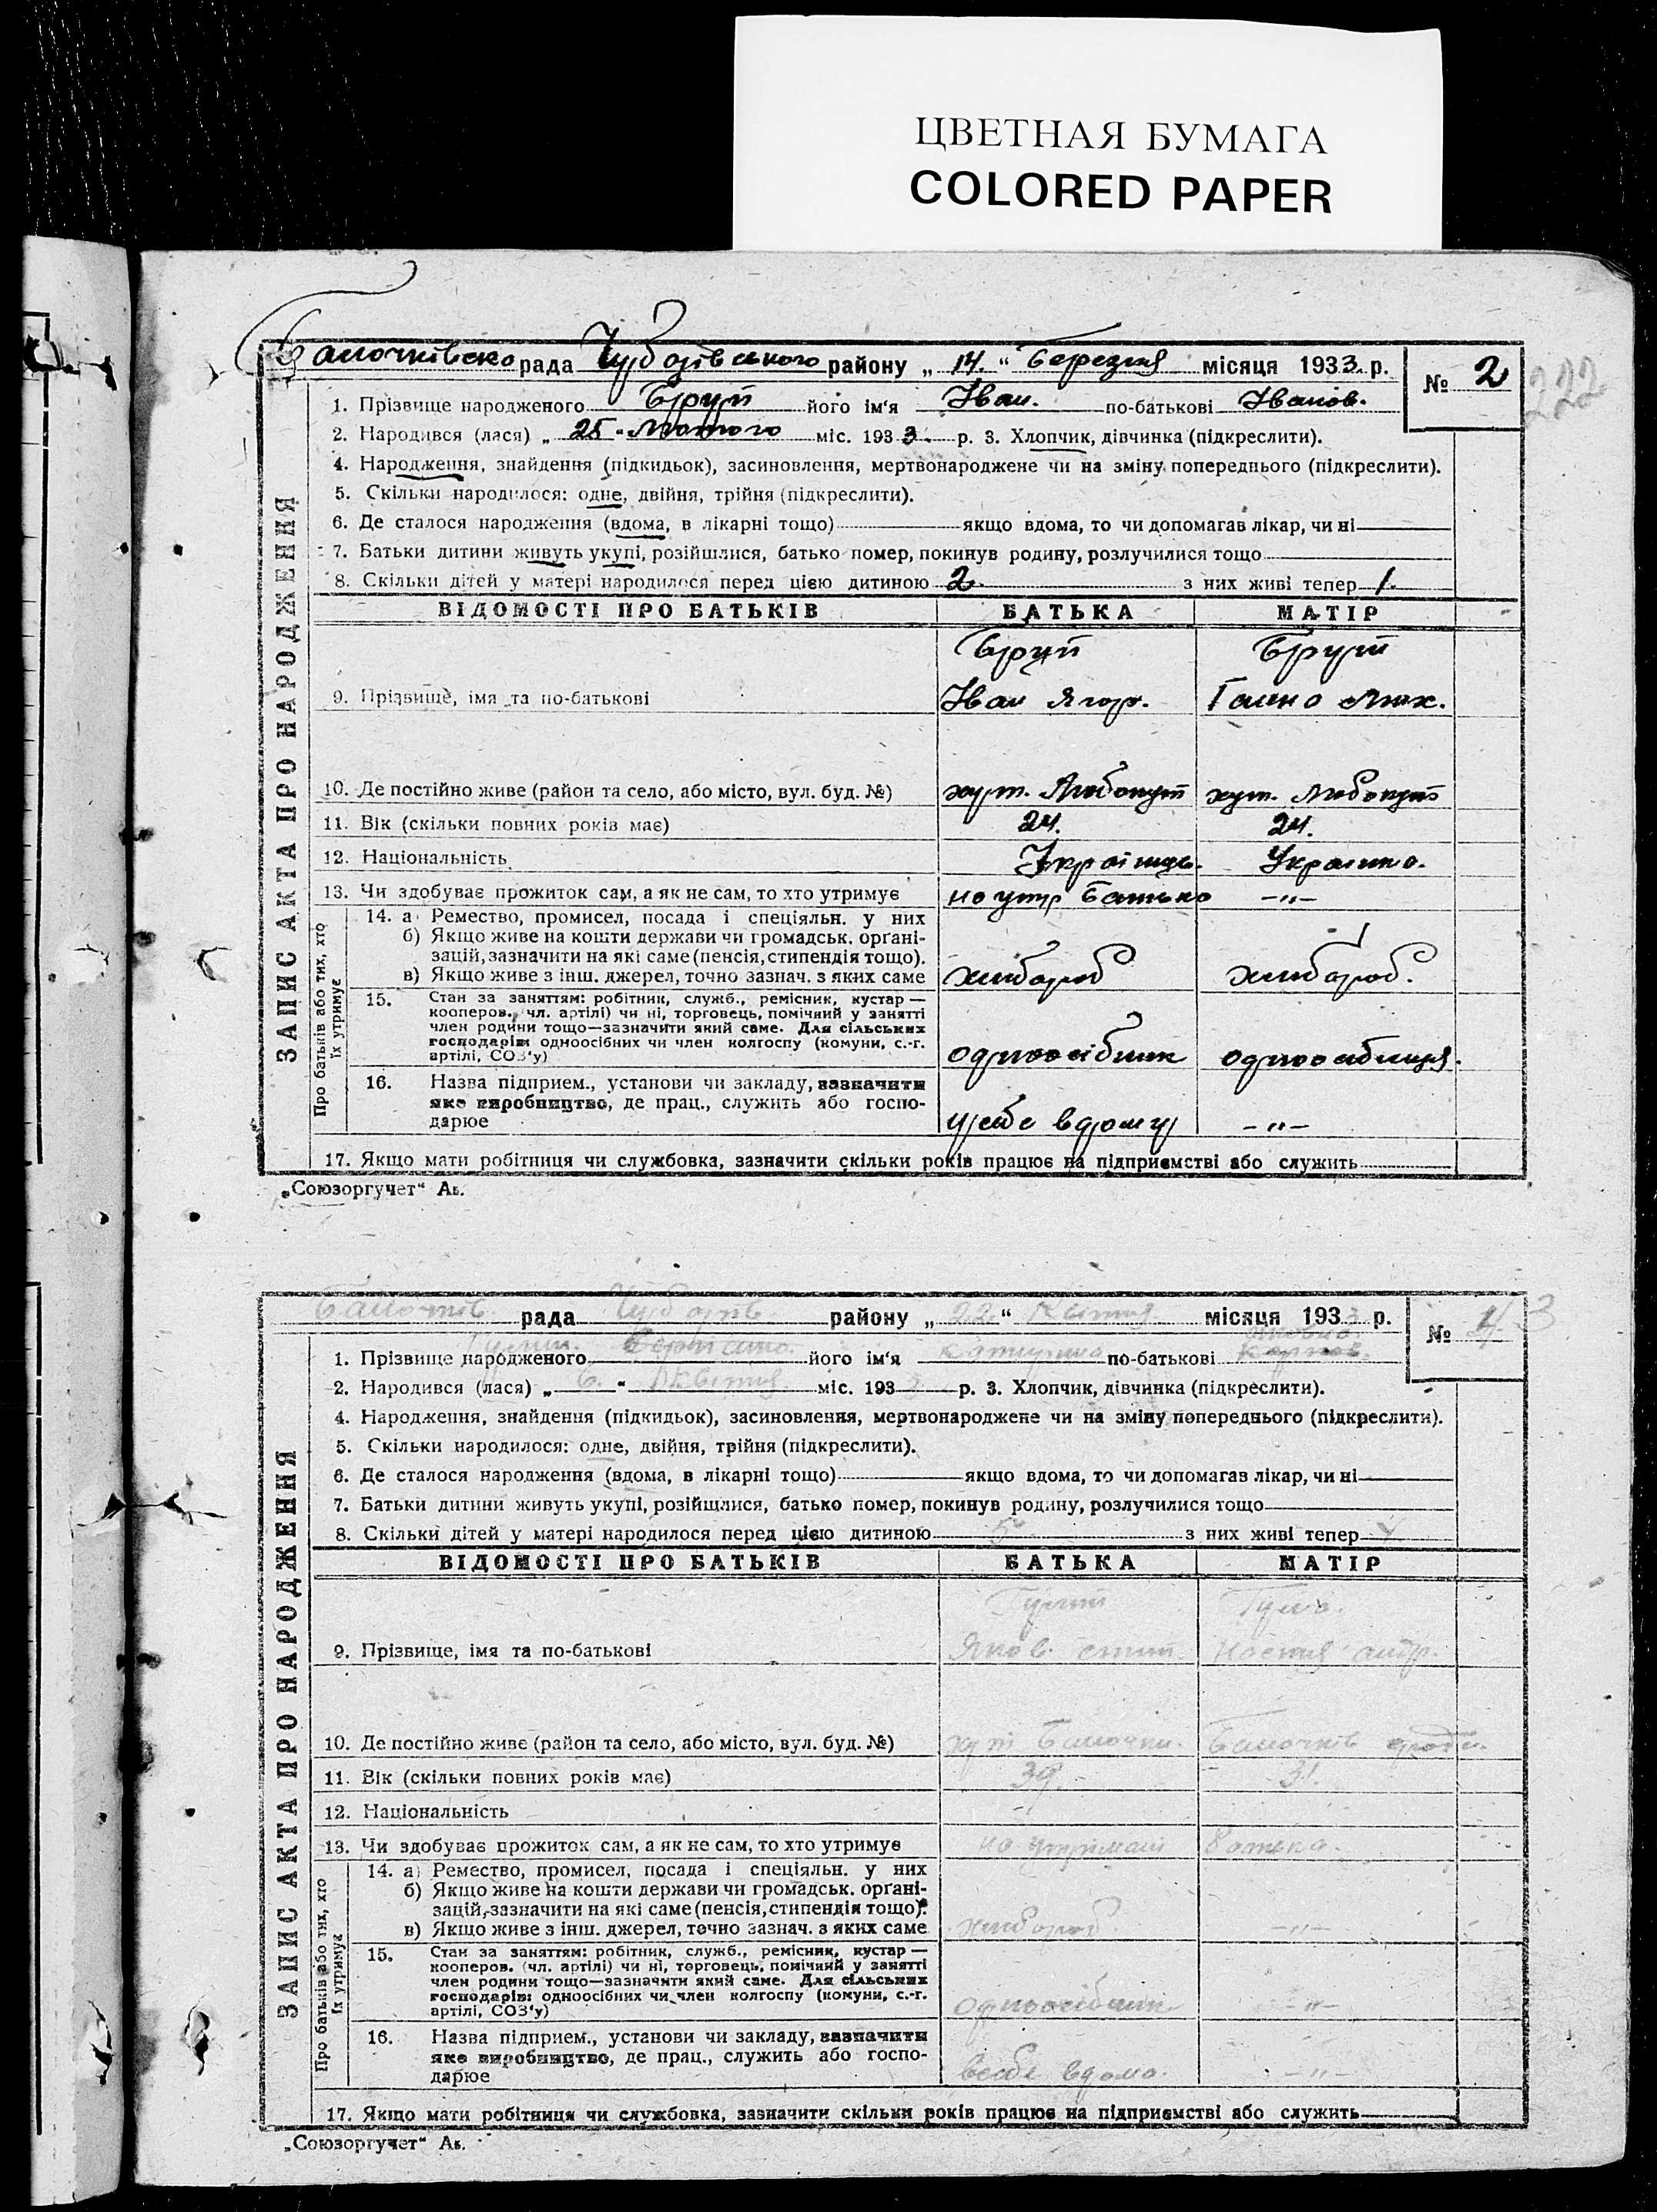 ЦВЕТНАЯ БУМАГА
COLORED PAPER
рада района „ 14. “ Березня місяця 1933. р. № 2
222
1. Прізвище народженого Бруй його ім‘я Іван. по-батькові Іванов.
2. Народився (лася) „ 25 “ Лютого міс. 1933. р. 3. Хлопчик, дівчинка (підкреслити).
4. Народження, знайдення (підкидьок), засиновлення, мертвонароджене чи на зміну попереднього (підкреслити).
5. Скільки народилося: одне, двійня, трійня (підкреслити).
6. Де сталося народження (вдома, в лікарні тощо) якщо вдома, то чи допомагав лікар, чи ні
7. Батьки дитини живуть укупі, розійшлися, батько помер, покинув родину, розлучилися тощо
8. Скільки дітей у матері народилося перед цією дитиною 2. з них живі тепер 1.
ВІДОМОСТІ ПРО БАТЬКІВ БАТЬКА МАТІР
Бруй
9. Прізвище, імя та по-батькові Іван Ягор. Мих.
10. Де постійно живе (район та село, або місто, вул. буд. №) хут. Любопут хут.
11. Вік (скільки повних років має) 24. 24.
12. Національність Українець.
13. Чи здобуває прожиток сам, а як не сам, то хто утримує на утр батько -„-
14. а) Ремество, промисел, посада і спеціяльн. у них
б) Якщо живе на кошти держави чи громадськ. орґані-
зацій, зазначити на які саме (пенсія, стипендія тощо).
в) Якщо живе з інш. джерел, точно зазнач. з яких саме хлібороб хлібороб.
15. Стан за заняттям: робітник, служб., ремісник, кустар —
кооперов. (чл. артілі) чи ні, торговець, помічний у занятті
член родини тощо—зазначити який саме. Для сільських
господарів: одноосібних чи член колгоспу (комуни, с.-г.
артілі, СОЗ‘у) одноосібник одноосібниця.
16. Назва підприєм., установи чи закладу, зазначити
яке виробництво, де прац., служить або госпо-
дарює усебе вдому -„-
17. Якщо мати робітниця чи службовка, зазначити скільки років працює на підприємстві або служить
ЗАПИС АКТА ПРО НАРОДЖЕННЯ
Про батьків або тих, хто їх утримує
„Союзоргучет“
рада району „ 22. “ Квітня місяця 1933 р. №
1. Прізвище народженого його ім‘я Катерина по-батькові
2. Народився (лася) „ 6. “ Квітня. міс. 193 р. 3. Хлопчик, дівчинка (підкреслити).
4. Народження, знайдення (підкидьок), засиновлення, мертвонароджене чи на зміну попереднього (підкреслити).
5. Скільки народилося: одне, двійня, трійня (підкреслити).
6. Де сталося народження (вдома, в лікарні тощо) якщо вдома, то чи допомагав лікар, чи ні
7. Батьки дитини живуть укупі, розійшлися, батько помер, покинув родину, розлучилися тощо
8. Скільки дітей у матері народилося перед цією дитиною 5 з них живі тепер
ВІДОМОСТІ ПРО БАТЬКІВ БАТЬКА МАТІР
9. Прізвище, імя та по-батькові Яков
10. Де постійно живе (район та село, або місто, вул. буд. №) хут
11. Вік (скільки повних років має) 39. 31.
12. Національність
13. Чи здобуває прожиток сам, а як не сам, то хто утримує на батька.
14. а) Ремество, промисел, посада і спеціяльн. у них
б) Якщо живе на кошти держави чи громадськ. орґані-
зацій, зазначити на які саме (пенсія, стипендія тощо).
в) Якщо живе з інш. джерел, точно зазнач. з яких саме хлібороб -„-
15. Стан за заняттям: робітник, служб., ремісник, кустар —
кооперов. (чл. артілі) чи ні, торговець, помічний у занятті
член родини тощо—зазначити який саме. Для сільських
господарів: одноосібних чи член колгоспу (комуни, с.-г.
артілі, СОЗ‘у) одноосібник -„-
16. Назва підприєм., установи чи закладу, зазначити
яке виробництво, де прац., служить або госпо-
дарює всебе вдома. -„-
17. Якщо мати робітниця чи службовка, зазначити скільки років працює на підприємстві або служить
ЗАПИС АКТА ПРО НАРОДЖЕННЯ
Про батьків або тих, хто їх утримує
„Союзоргучет“